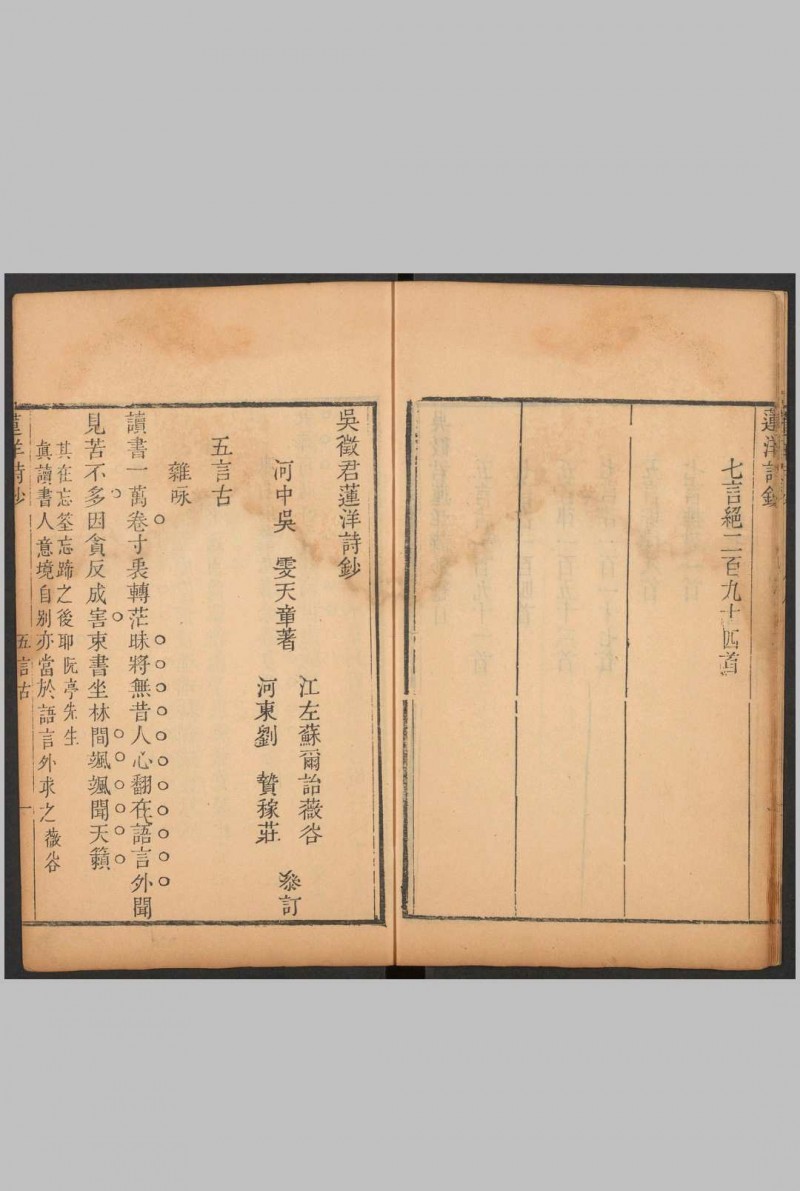 蓮洋詩鈔
七言絕二百九十四首
吳徵君蓮洋詩鈔
河中吳　雯天章著
江左蘇爾詒薇谷
河東劉　贄稼莊
叅訂
五言古
雜詠
讀書一萬卷寸衷轉茫昧將無昔人心翻在語言外聞
見苦不多因貪反成害束書坐林間颯颯聞天籟
其在忘筌忘蹄之後耶阮亭先生
真讀書人意境自别亦當於語言外求之薇谷
蓮洋詩鈔
五言古
一